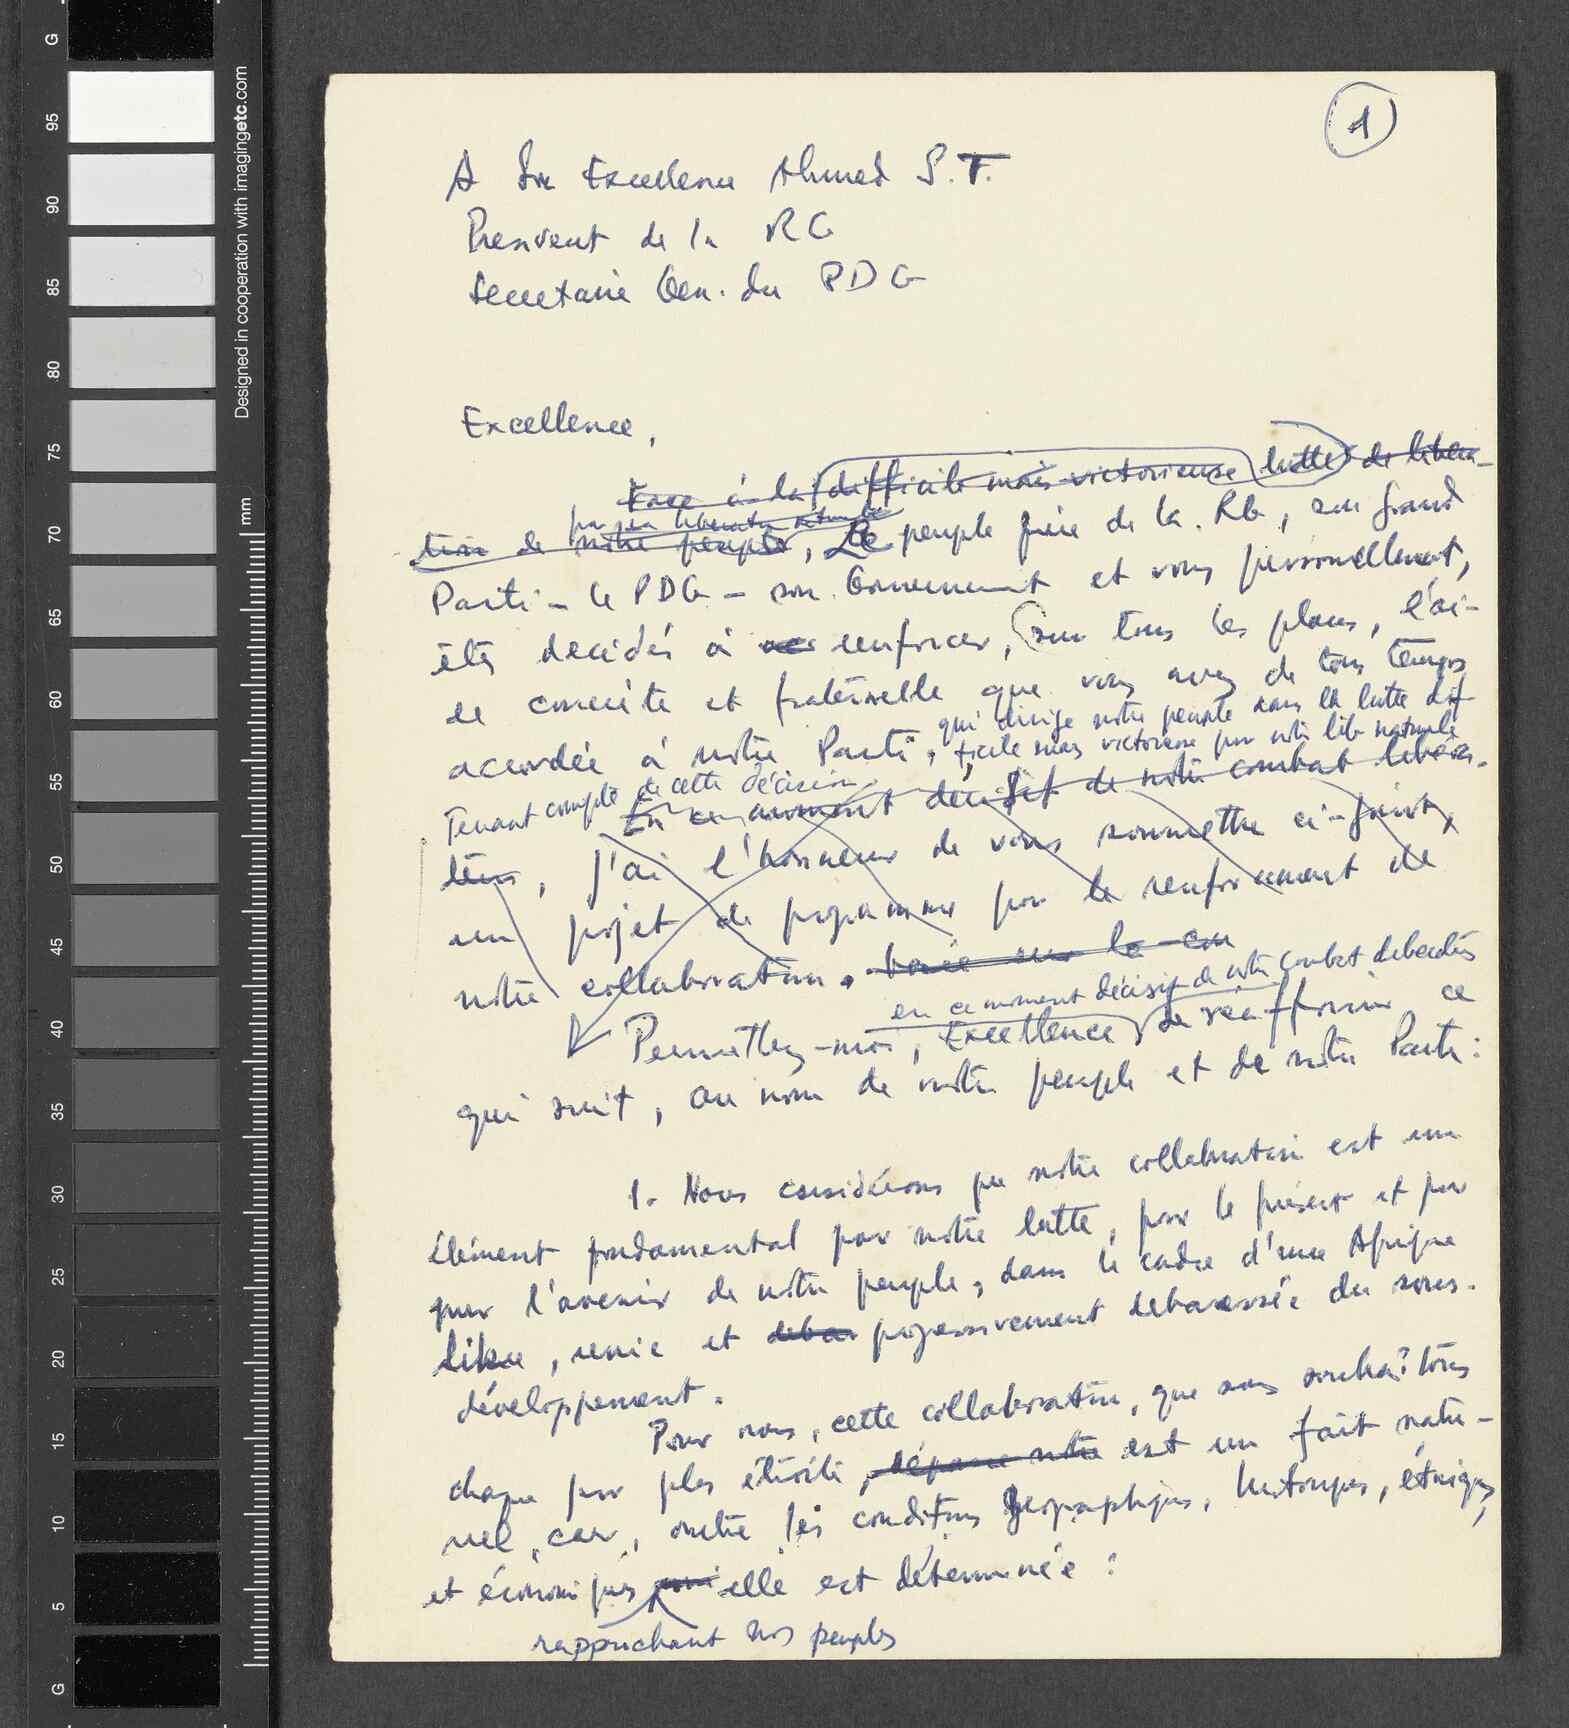 1
A Son Excellence Ahmed S.T.
President de la RG
Secretaire Gen. du PDG
Excellence,
Face à la difficile mais victorieuse lutte de libéra-
pour sa libération nationale
tion de notre peuple, Le peuple frère de la RG, son grand
Parti - le PDG - son Gouvernement et vous personnellement,
êtes decidés à renforcer, sur tous les plans, l'ai-
de concrète et fraternelle que vous avez de tous temps
qui dirige notre peuple dans la lutte dif-
acordée à notre Parti, ficile mais victorieuse pour notre lib. nationale
Tenant compte de cette décision
En ce moment decisif de notre combat libéra-
teur, j'ai l'honneur de vous soumettre ci-joint,
un projet de programme pour le renforcement de
notre collaboration. basée sur la con
en ce moment décisif de notre combat liberateur
Permettez-moi, Excellence de réaffirmer ce
qui suit, au nom de notre peuple et de notre Parti:
1. Nous considérons que notre collaboration est un
élément fondamental pour notre lutte, pour le présent et pour
pour l'avenir de notre peuple, dans le cadre d'une Afrique
libre, unie et debar progressivement debarassée du sous-
développement.
Pour nous, cette collaboration, que nous souhaitons
chaque jour plus étroite, est un fait natu-
rel, car, outre les conditions géographiques, historiques, étniques,
et économiques elle est déterminée:
rapprochant nos peuples
G
95
90
85
80
75
70
65
60
55
50
45
40
35
30
25
20
15
10
5
G
Designed in cooperation with imagingetc.com
mm